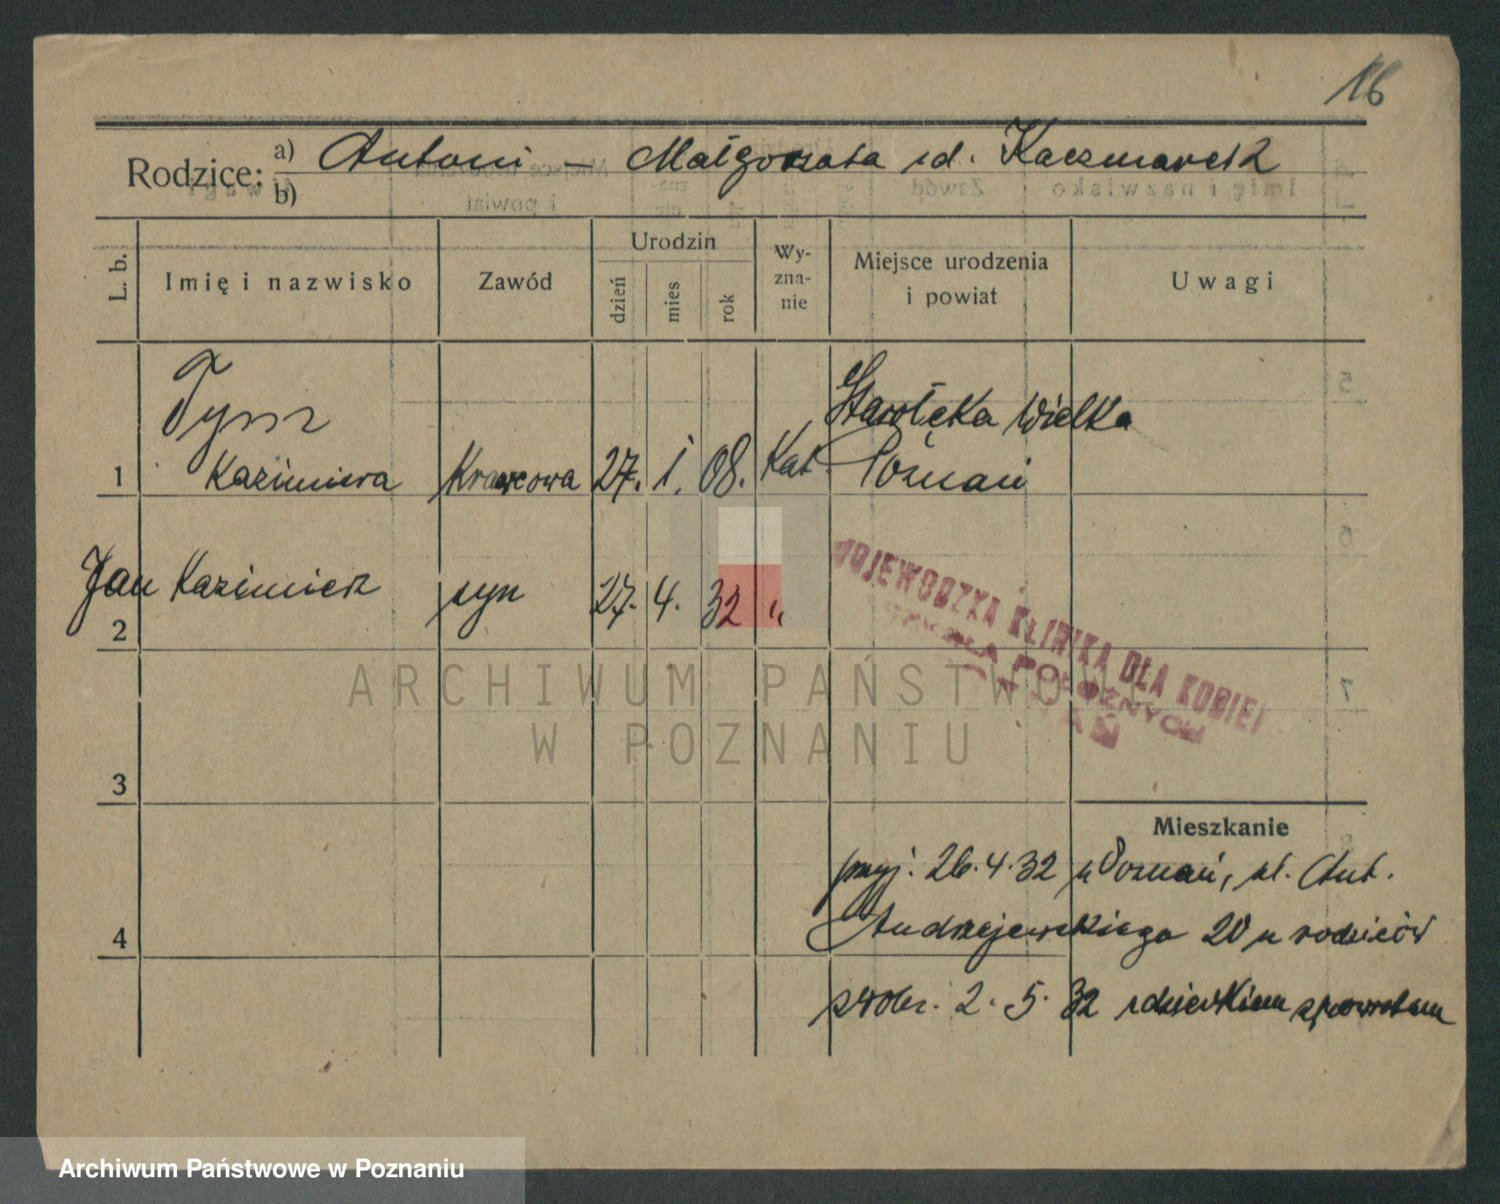 16
Rodzice: a) Antoni — Małgorzata rd. Kaczmarek
b)
L. b. Imię i nazwisko Zawód Urodzin dzień mies rok Wy-zna-nie Miejsce urodzenia i powiat Uwagi
Tysz Starołęka Wielka
1 Kazimiera Krawcowa 27. 1. 08. Kat Poznań
Jan Kazimierz syn 27. 4. 32 "
2
WOJEWÓDZKA KLINIKA DLA KOBIET
POŁOŻNYCH
ARCHIWUM PAŃSTWOWE
W POZNANIU
3
Mieszkanie
przyj. 26.4.32 z Poznań, ul. Ant.
4 Andrzejewskiego 20 u rodziców
2. 5. 32 z dzieckiem z powrotem
Archiwum Państwowe w Poznaniu